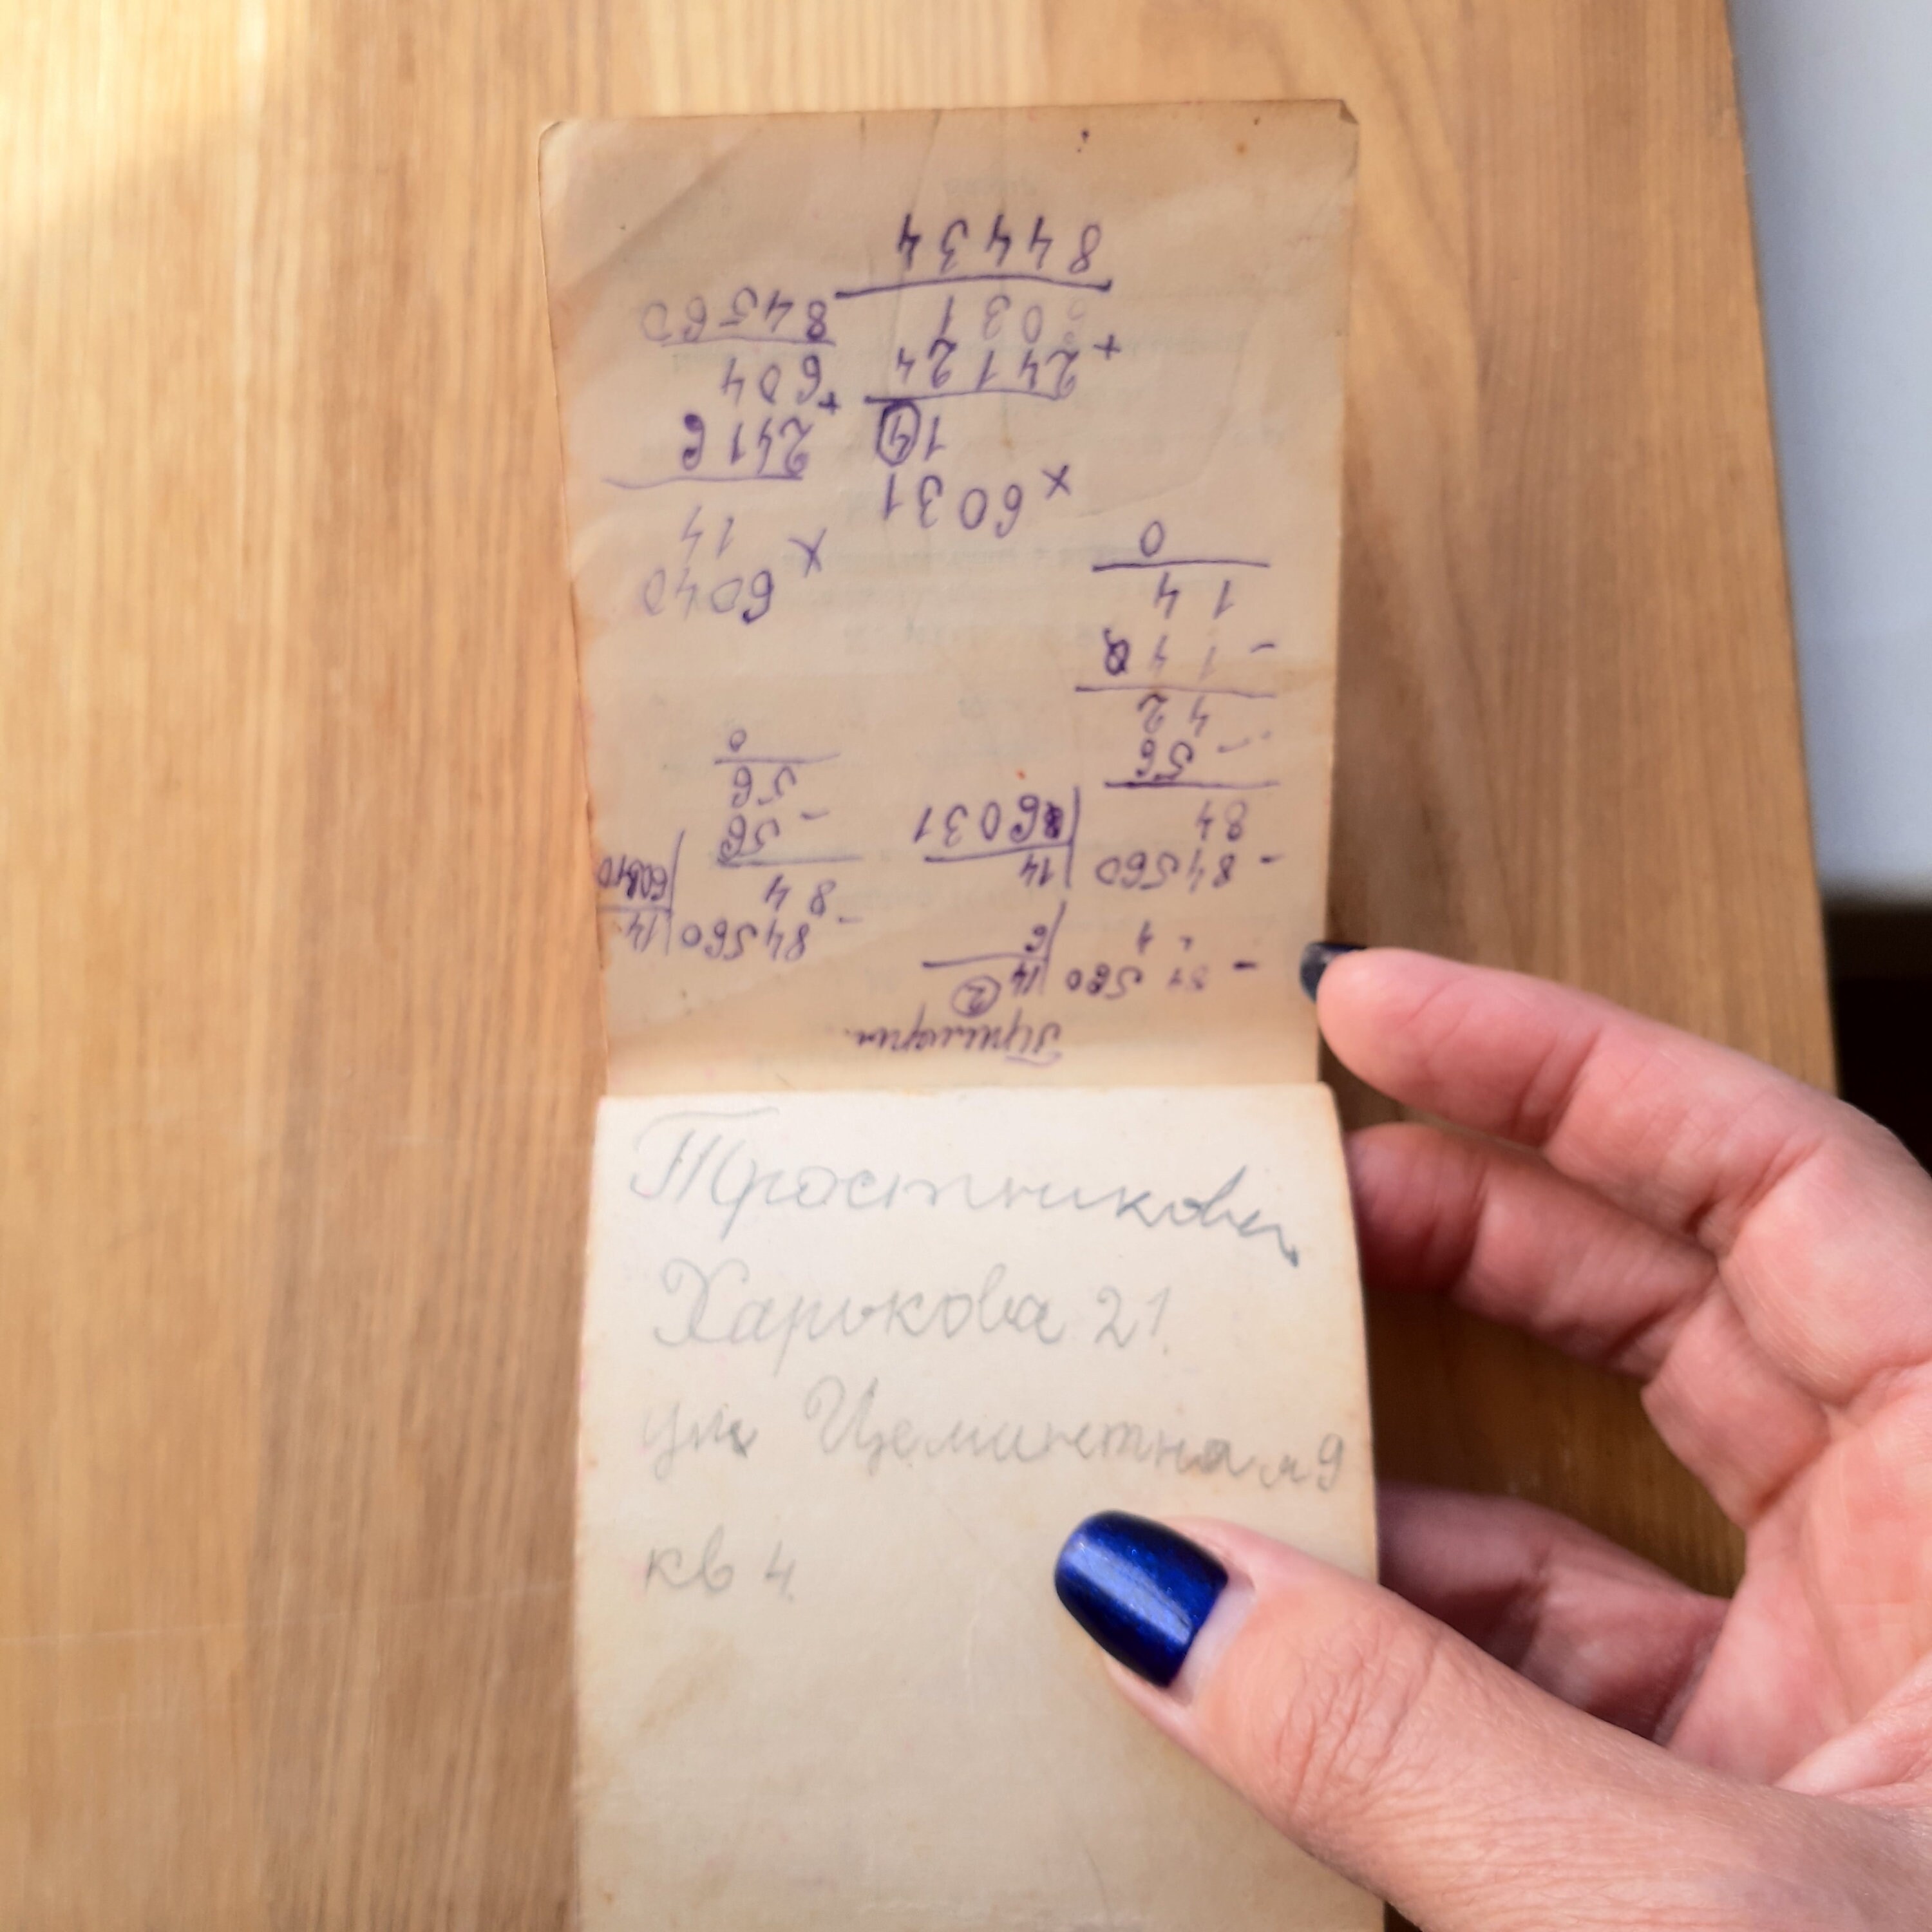 Примеры.
- 84560 | 14
6
②
- 84560 | 14
84 | 6031
- 56
42
- 14
14
0
- 84560 | 14
84
- 56
56
0
× 6031
14
24124
+ 6031
84434
× 6040
14
2416
+ 604
84560
Тростникова
Харькова 21.
ул Цементная 9
кв 4.